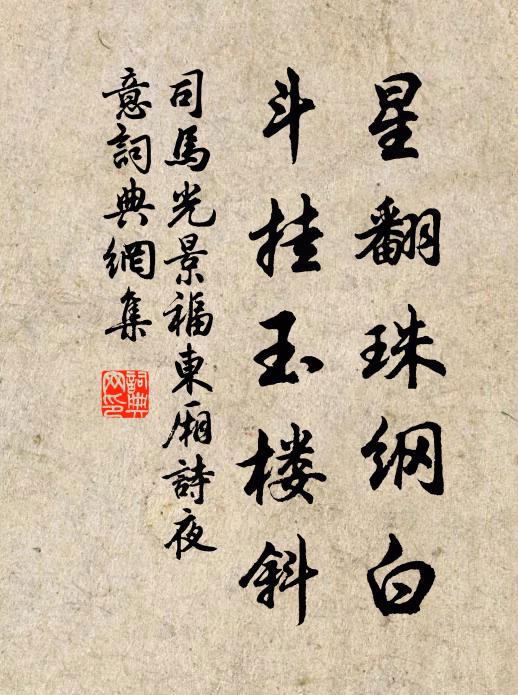 星翻珠纲白
斗挂玉楼斜
司馬光景福東厢詩夜
意詞典網集
詞典
网印